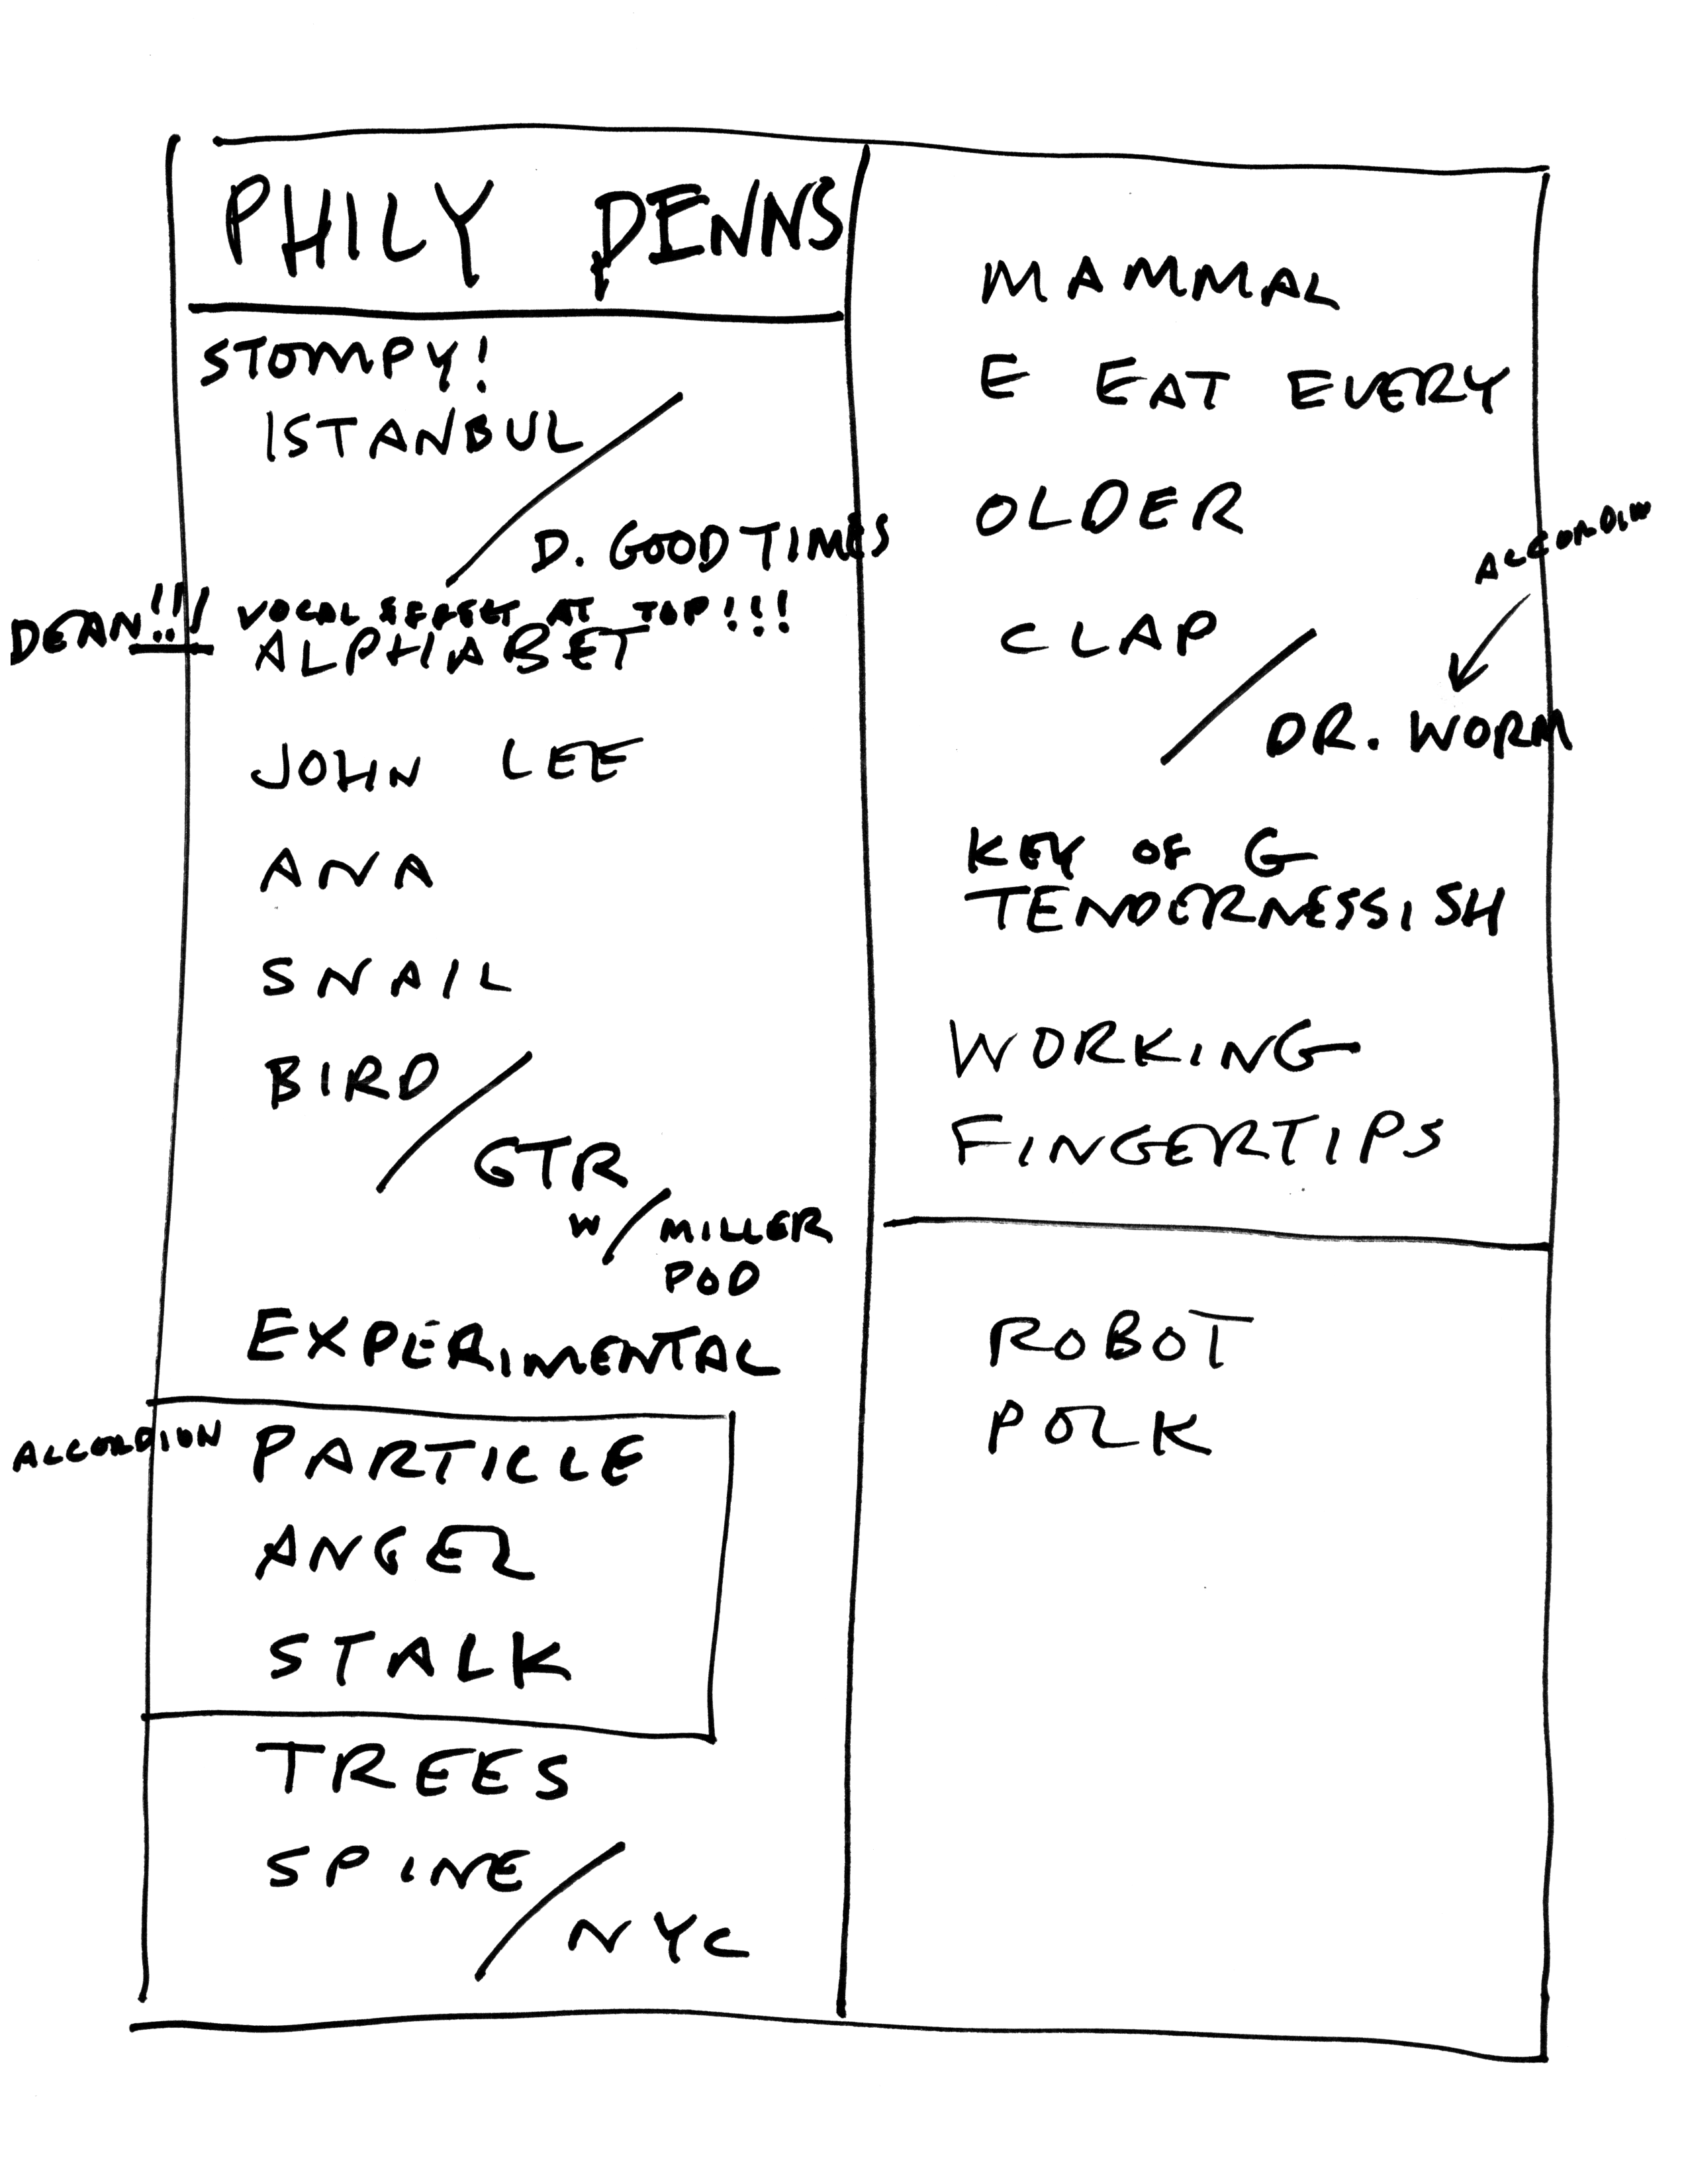 PHILY PENNS
STOMPY!
ISTANBUL /
D. GOOD TIMES
DEAN!!! VOCAL EFFECT AT TOP!!!
ALPHABET
JOHN LEE
ANA
SNAIL
BIRD /
GTR
W/ MILLER
POD
EXPERIMENTAL
ACCORDION PARTICLE
ANGEL
STALK
TREES
SPINE /
NYC
MAMMAL
E EAT EVERY
OLDER
ACCORDION
CLAP /
DR. WORM
KEY OF G
TENDERNESSISH
WORKING
FINGERTIPS
ROBOT
POLK